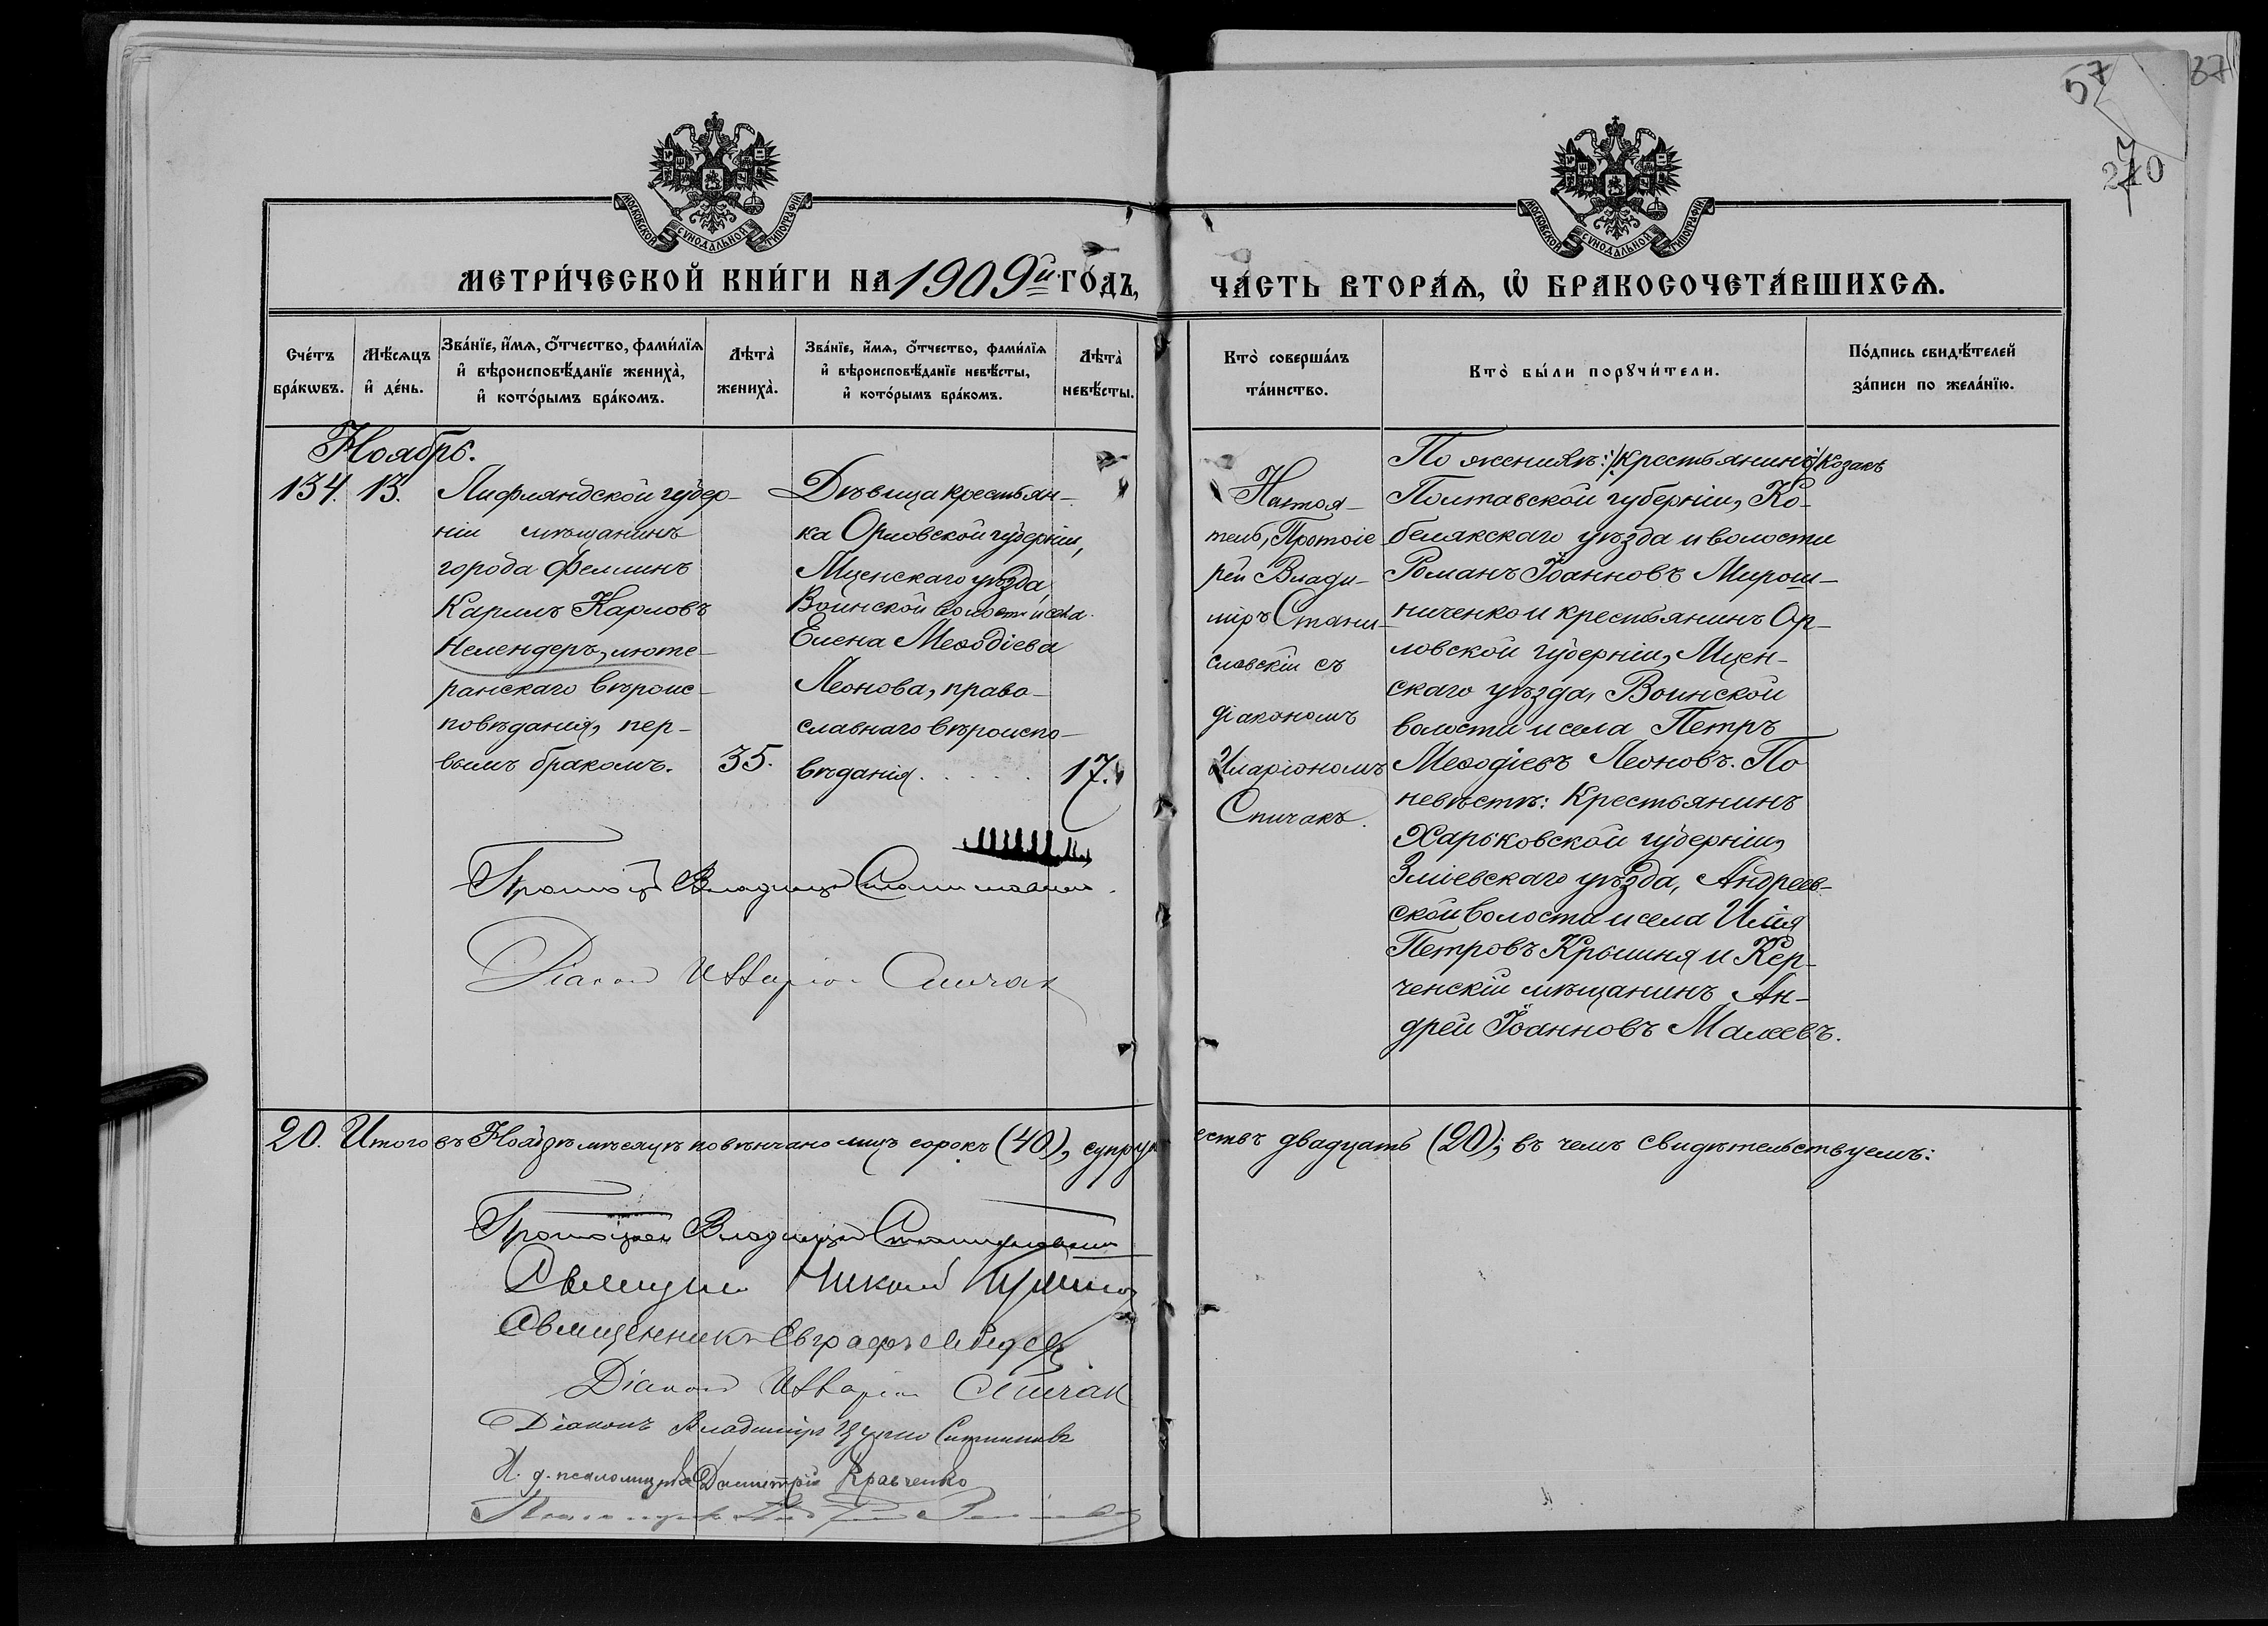 57
37
270
МОСКОВСКОЙ СѴНОДАЛЬНОЙ ТИПОГРАФІИ
МОСКОВСКОЙ СѴНОДАЛЬНОЙ ТИПОГРАФІИ
МЕТРИ́ЧЕСКОЙ КНИ́ГИ НА 1909й ГО́ДЪ,
ЧА́СТЬ ВТОРА́Ѧ, Ѽ БРАКОСОЧЕТА́ВШИХСѦ.
Сче́тъ бра́кѡвъ.
Мѣ́сѧцъ и҆ де́нь.
Зва́нїе, и҆́мѧ, ѻ҆́тчество, фами́лїѧ
и҆ вѣроисповѣ́данїе жениха̀,
и҆ кото́рымъ бра́комъ.
Лѣта̀ жениха̀.
Зва́нїе, и҆́мѧ, ѻ҆́тчество, фами́лїѧ
и҆ вѣроисповѣ́данїе невѣ́сты,
и҆ кото́рымъ бра́комъ.
Лѣта̀ невѣ́сты.
Кто̀ соверша́лъ
та́инство.
Кто̀ бы́ли порꙋчи́тели.
По́дпись свидѣ́телей
за́писи по жела́нїю.
Ноябрь.
134. 13.
Лифляндской губер-
ніи мѣщанинъ
города Феллинъ
Карлъ Карловъ
Нелендеръ, люте-
ранскаго вѣроис-
повѣданія, пер-
вымъ бракомъ.
35.
Дѣвица крестьян-
ка Орловской губерніи,
Мценскаго уѣзда,
Воинской волости и села
Елена Меѳодіева
Леонова, право-
славнаго вѣроиспо-
вѣданія . . . . .
17.
Настоя-
тель, Протоіе
рей Влади-
міръ Стани-
славскій съ
діакономъ
Иларіономъ
Спичакъ.
По женихѣ: /крестьянинъ/ Козакъ
Полтавской губерніи, Ко-
белякскаго уѣзда и волости
Романъ Іоанновъ Мирош-
ниченко и крестьянинъ Ор-
ловской губерніи, Мцен-
скаго уѣзда, Воинской
волости и села Петръ
Меѳодіевъ Леоновъ. По
невѣстѣ: Крестьянинъ
Харьковской губерніи,
Зміевскаго уѣзда, Андреев-
ской волости и села Илія
Петровъ Крышня и Кер-
ченскій мѣщанинъ Ан-
дрей Іоанновъ Малеевъ.
Протоіерей Владиміръ Станиславскій
Діаконъ Илларіонъ Спичакъ
20. Итого въ Ноябрѣ мѣсяцѣ повѣнчано лицъ сорокъ (40), супру
ествъ двадцать (20); въ чемъ свидѣтельствуемъ:
Протоіерей Владиміръ Станиславскій
Священникъ Николай
Священникъ Евграфъ
Діаконъ Илларіонъ Спичакъ
Діаконъ Владиміръ
И. д. псаломщика Димитрій Кравченко